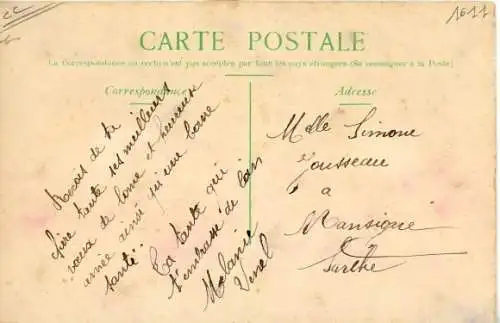 1611
CARTE POSTALE
La Correspondance au recto n'est pas acceptée par tous les pays étrangers (Se renseigner à la Poste)
Correspondance
Adresse
de te
faire tante ses meilleurs
voeux de bonne et heureuse
année ainsi qu'une bonne
santé.
Ta tante qui
t'embrasse de loin
Mélanie
Melle Simone
Jousseau
a
Mansigné
Sarthe